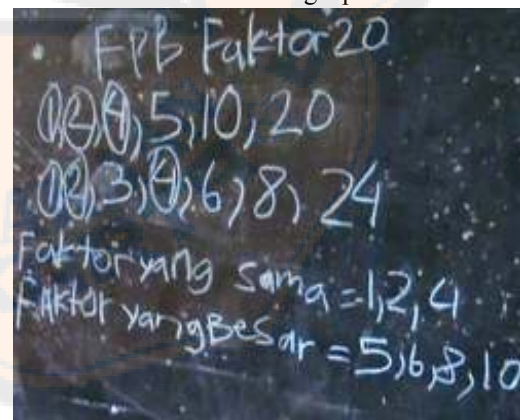 FPB Faktor 20
1,2,4,5,10,20
1,2,3,4,6,8,24
Faktor yang sama=1,2,4
Faktor yang Besar=5,6,8,10